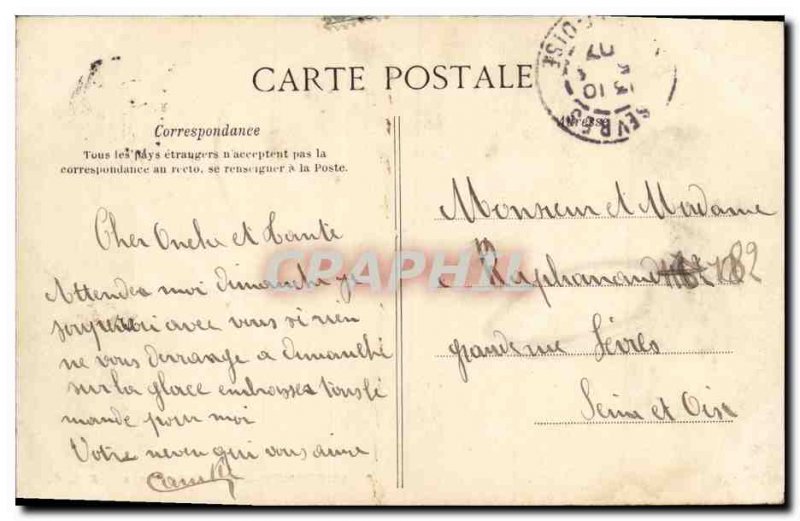 CARTE POSTALE
SEVRES
Correspondance
Adresse
Tous les pays étrangers n'acceptent pas la
correspondance au recto, se renseigner à la Poste.
Cher Oncle et Tante
Attendez moi dimanche je
avec vous si rien
ne vous derrange a dimanche
sur la glace embrassez tous le
monde pour moi
Votre neveu qui vous aime
Camille
Monsieur et Madame
Raphanaud 82
grande rue Sèvres
Seine et Oise
CPAPHIL